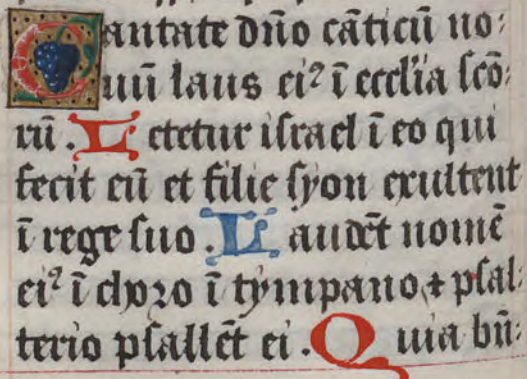 Cantate dño cãticũ no:
uũ laus eiꝰ ĩ ecclĩa scõ:
rũ. Letetur israel ĩ eo qui
fecit eũ et filie syon exultent
ĩ rege suo. Laudẽt nomẽ
eiꝰ ĩ choro ĩ tympano ⁊ psal-
terio psallẽt ei. Quia bñ: